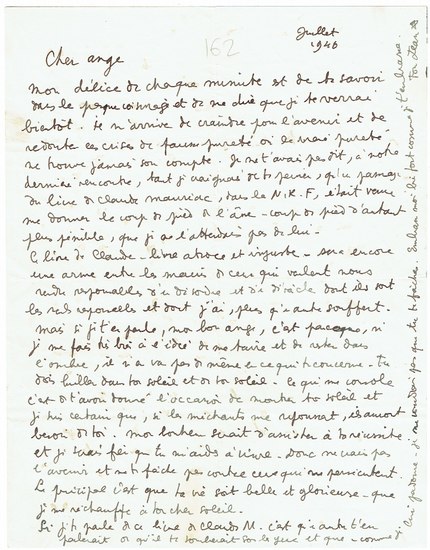 Juillet
1940
162
Cher ange
mon délice de chaque minute est de te savoir
dans le et de me dire que je te verrai
bientôt. Il m'arrive de craindre pour l'avenir et de
redouter les crises de fausse pureté où la vraie pureté
ne trouve jamais son compte. Je ne t'avais pas dit, à notre
dernière rencontre, tant je craignais de te peiner, qu'un passage
du livre de Claude Mauriac, dans la N.R.F, était venu
me donner le coup de pied de l'âne - coup de pied d'autant
plus pénible, que je ne l'attendais pas de lui.
Ce livre de Claude - livre atroce et injuste - sera encore
une arme entre les mains de ceux qui veulent nous
rendre responsables d'un désordre et d'une débâcle dont ils sont
les seuls responsables et dont j'ai, plus qu'un autre souffert.
mais si je t'en parle, mon bon ange, c'est parce que, si
je me fais très bien à l'idée de me taire et de rester dans
l'ombre, il n'en va pas de même en ce qui te concerne. Tu
dois briller dans ton soleil et de ton soleil. Ce qui me console
c'est de t'avoir donné l'occasion de montrer ton soleil et
je suis certain que, si les méchants me repoussent, ils auront
besoin de toi. mon bonheur serait d'assister à ta réussite
et je serais fier que tu m'aides à vivre. Donc ne crains pas
l'avenir et ne te fâche pas contre ceux qui me persécutent.
Le principal c'est que ta vie soit belle et glorieuse - que
je me réchauffe à ton cher soleil.
Si je te parle de ce livre de Claude M. c'est qu'un autre t'en
parlerait ou qu'il te tomberait sous les yeux et que - comme
pardonne - je ne voudrais pas que tu te fâches. Embrasse moi bien fort comme je t'embrasse.
Ton Jean